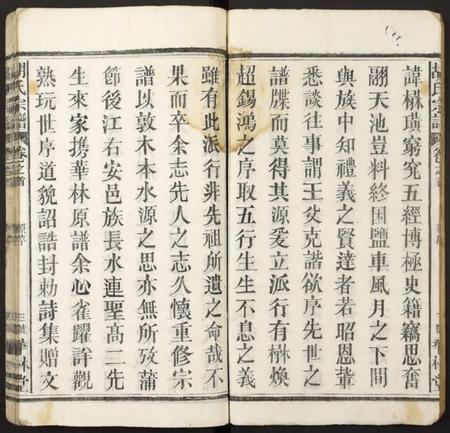 諱楙璜窮究五經博極史籍竊思奮
翮天池豈料終困鹽車風月之下間
與族中知禮義之賢達者若昭恩輩
悉談往事謂王父克諧欲序先世之
譜牒而莫得其源爰立派行有楙煥
超錫鴻之序取五行生生不息之義
雖有此派行非先祖所遺之命哉不
果而卒余志先人之志久懷重修宗
譜以敦木本水源之思亦無所攷蒲
節後江右安邑族長水連聖高二先
生來家携華林原譜余心雀躍詳觀
熟玩世序道貌詔誥封勅詩集贈文
胡氏宗譜
卷之首
華林堂
胡氏宗譜
卷之首
華林堂